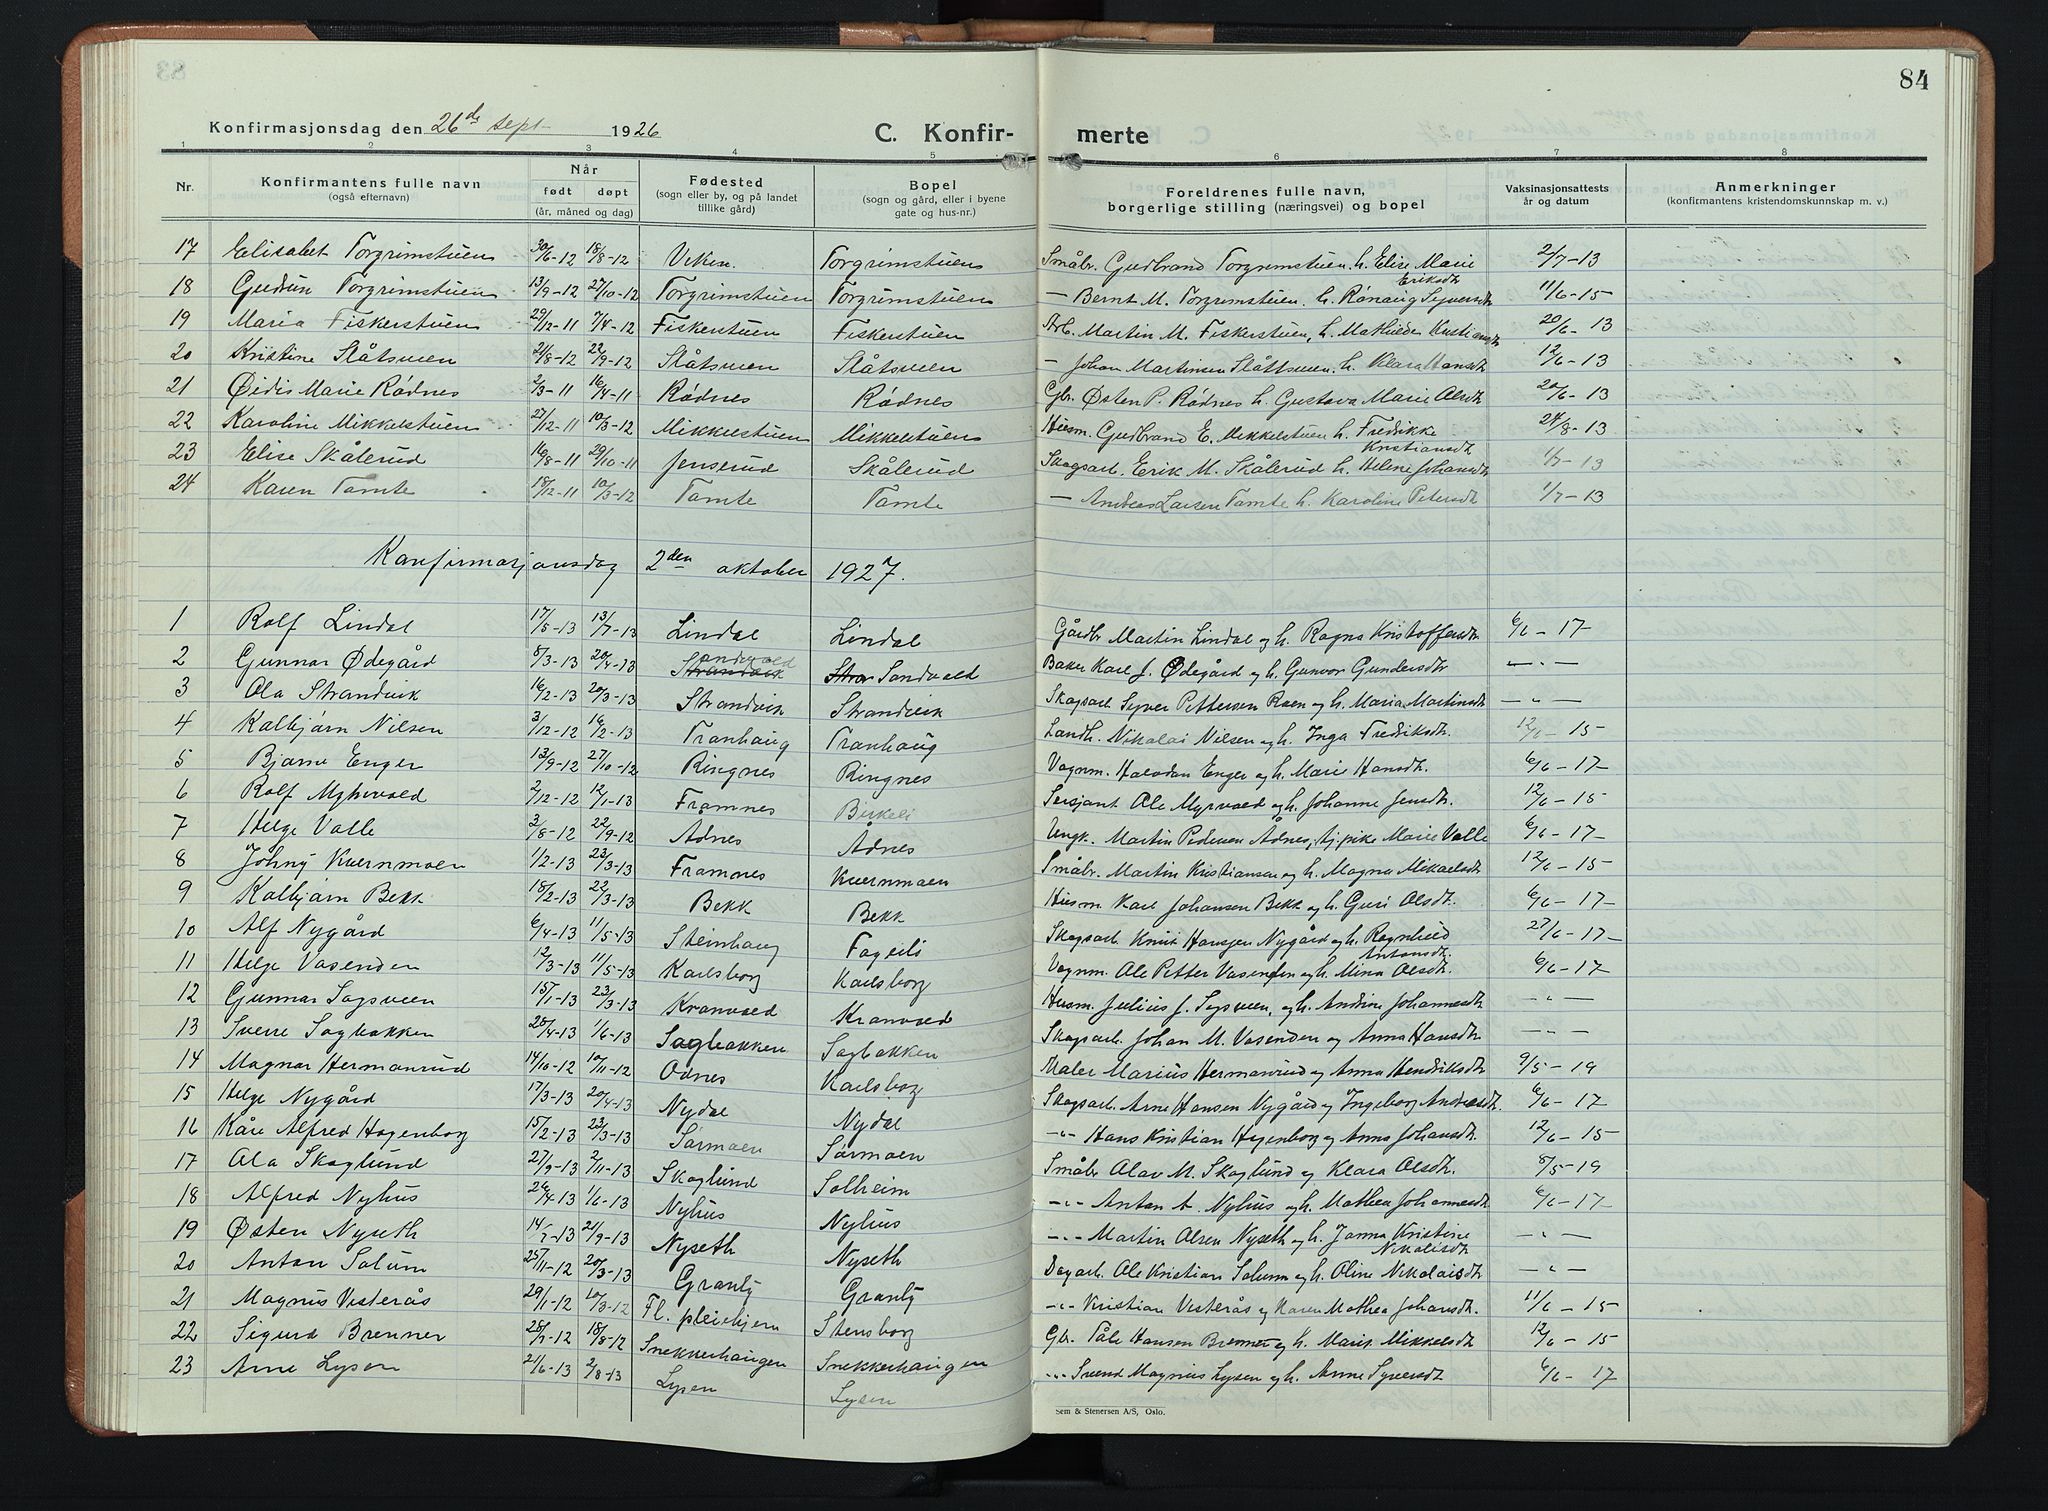 84
Konfirmasjonsdag den 26de sept 1926 C. Konfir- merte
1 2 3 4 5 6 7 8
Nr. Konfirmantens fulle navn (også efternavn) Når født døpt (år, måned og dag) Fødested (sogn eller by, og på landet tillike gård) Bopel (sogn og gård, eller i byene gate og hus-nr.) Foreldrenes fulle navn, borgerlige stilling (næringsvei) og bopel Vaksinasjonsattests år og datum Anmerkninger (konfirmantens kristendomskunnskap m. v.)
17 Elisabet Torgrimstuen 30/6-12 18/8-12 Viken. Torgrimstuen Småbr. Gudbrand Torgrimstuen h. Elise Marie Eriksdt 2/7-13
18 Gudrun Torgrimstuen 13/9-12 27/10-12 Torgrimstuen Torgrimstuen — Bernt M. Torgrimstuen h. Rønaug Syversdt 11/6-15
19 Maria Fiskerstuen 29/12-11 7/4-12 Fiskerstuen Fiskerstuen Arb. Martin M. Fiskerstuen, h. Mathilde Kristiansdt 20/6-13
20 Kristine Slåtsveen 21/8-12 22/9-12 Slåtsveen Slåtsveen — Johan Martinsen Slåttsveen h. Klara Hansdt 12/6-13
21 Øidis Marie Rødnes 2/3-11 16/4-11 Rødnes Rødnes Gbr. Østen P. Rødnes h. Gustava Marie Olsdt 20/6-13
22 Karoline Mikkelstuen 27/12-11 10/3-12 Mikkelstuen Mikkelstuen Husm. Gudbrand E. Mikkelstuen h. Fredrikke Kristiansdt 24/8-13
23 Elise Skålerud 16/8-11 29/10-11 Jenserud Skålerud Skogsarb. Erik M. Skålerud h. Helene Johansdt 1/7-13
24 Karen Tømte 18/12-11 10/3-12 Tømte Tømte — Andreas Larsen Tømte h. Karoline Petersdt 1/7-13
Konfirmasjonsdag 2den oktober 1927.
1 Rolf Lindal 17/5-13 13/7-13 Lindal Lindal Gårdbr. Martin Lindal og h. Ragna Kristoffersdt 6/6-17
2 Gunnar Ødegård 8/3-13 20/4-13 Strandvik Sandvold Stra Sandvold Baker Karl J. Ødegård og h. Gunvor Gundersdt — „ —
3 Ola Strandvik 16/2-13 20/3-13 Strandvik Strandvik Skogsarb. Syver Pettersen Roen og h. Maria Martinsdt — „ —
4 Kolbjørn Nilsen 3/12-12 16/2-13 Tranhaug Tranhaug Landh. Nikolai Nilsen og h. Inga Fredriksdt. 12/6-15
5 Bjarne Enger 13/9-12 27/10-12 Ringnes Ringnes Vognm. Halvdan Enger og h. Marie Hansdt. 6/6-17
6 Rolf Myhrvold 2/12-12 12/1-13 Framnes Birkeli Sersjant Ole Myrvold og h. Johanne Jensdt. 12/6-15
7 Helge Valle 3/8-12 22/9-12 Ådnes Ådnes Ungk. Martin Pedersen Ådnes, og pike Marie Valle 6/6-17
8 Johny Kvernmoen 1/2-13 23/3-13 Framnes Kvernmoen Småbr. Martin Kristiansen og h. Magna Mikaelsdt 12/6-15
9 Kolbjørn Bekk 18/2-13 22/3-13 Bekk Bekk Husm Karl Johansen Bekk og h. Guri Olsdt. 6/6-17
10 Alf Nygård 6/4-13 11/5-13 Steinhaug Fagerli Skogsarb. Knut Hansen Nygård og h. Ragnhild Antonsdt. 27/6-17
11 Helge Vasenden 12/3-13 11/5-13 Karlsborg Karlsborg Vognm. Ole Petter Vasenden og h. Mina Olsdt. 6/6-17
12 Gunnar Sagsveen 15/1-13 23/3-13 Kranvold Kranvold Husm. Julius J. Sagsveen, og h. Andrine Johannesdt — „ —
13 Sverre Sagbakken 25/4-13 1/6-13 Sagbakken Sagbakken Skogsarb. Johan M. Vasenden og Anna Hansdt — „ —
14 Magnar Hermanrud 14/10-12 10/11-12 Odnes Karlsborg Maler Marius Hermanrud og Anna Hendriksdt 9/5-19
15 Helge Nygård 17/3-13 20/4-13 Nydal Nydal Skogsarb. Arne Hansen Nygård og Ingeborg Andresdt. 6/6-17
16 Kåre Alfred Hagenborg 15/2-13 23/3-13 Sørmoen Sørmoen -„- Hans Kristian Hagenborg og Anna Johansdt. 12/6-15
17 Ola Skoglund 27/9-13 2/11-13 Skoglund Solheim Småbr Olav M. Skoglund og Klara Olsdt. 8/5-19
18 Alfred Nyhus 26/4-13 1/6-13 Nyhus Nyhus -„- Anton A. Nyhus og h. Mathea Johannesdt 6/6-17
19 Østen Nyseth 14/7-13 21/9-13 Nyseth Nyseth -„- Martin Olsen Nyseth og h. Janna Kristine Nikolisdt — „ —
20 Anton Solum 25/11-12 20/3-13 Granly Granly Dagarb. Ole Kristian Solum og h. Oline Nikolaisdt — „ —
21 Magnus Vesterås 29/1-12 10/3-12 Fl. pleiehjem Stensborg -„- Kristian Vesterås og Karen Mathea Johansdt. 11/6-15
22 Sigurd Brenner 25/7-12 18/8-12 Snekkerhaugen Snekkerhaugen Gbr. Påle Hansen Brenner og h. Marie Mikkelsdt 12/6-15
23 Arne Lysen 21/6-13 2/8-13 Lysen Lysen -„- Svend Magnus Lysen og h. Anne Syversdt 6/6-17
Sem & Stenersen A/S, Oslo.